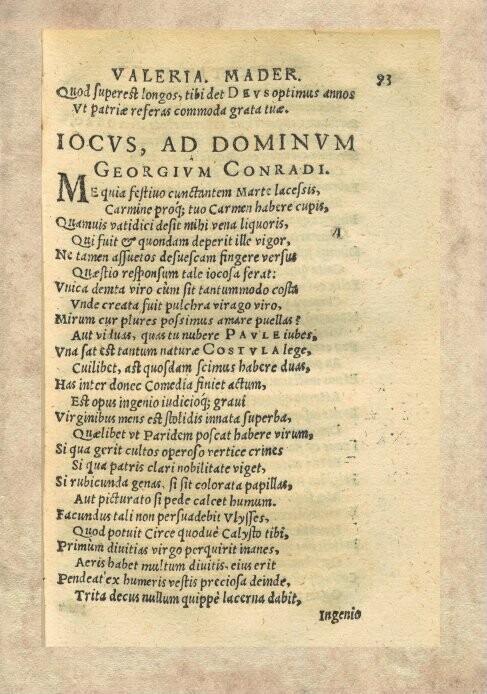 VALERIA. MADER. 93
Quod superest longos, tibi det DEVS optimus annos
Vt patriæ referas commoda grata tuæ.
IOCVS, AD DOMINVM
GEORGIVM CONRADI.
ME quia festiuo cunctantem Marte lacessis,
Carmine proq; tuo Carmen habere cupis,
Quamuis vatidici desit mihi vena liquoris,
Qui fuit & quondam deperit ille vigor,
Ne tamen assuetos desuescam fingere versus
Quæstio responsum tale iocosa ferat:
Vnica demta viro cùm sit tantummodo costa
Vnde creata fuit pulchra virago viro,
Mirum cur plures possimus amare puellas?
Aut viduas, quas tu nubere PAVLE iubes,
Vna sat est tantum naturæ COSTVLA lege,
Cuilibet, ast quosdam scimus habere duas,
Has inter donec Comedia finiet actum,
Est opus ingenio iudicioq; graui
Virginibus mens est stolidis innata superba,
Quælibet vt Paridem poscat habere virum,
Si qua gerit cultos operoso vertice crines
Si qua patris clari nobilitate viget,
Si rubicunda genas, si sit colorata papillas,
Aut picturato si pede calcet humum.
Facundus tali non persuadebit Vlysses,
Quod potuit Circe quoduè Calysto tibi,
Primùm diuitias virgo perquirit inanes,
Aeris habet multum diuitis, eius erit
Pendeat ex humeris vestis preciosa deinde,
Trita decus nullum quippè lacerna dabit,
Ingenio